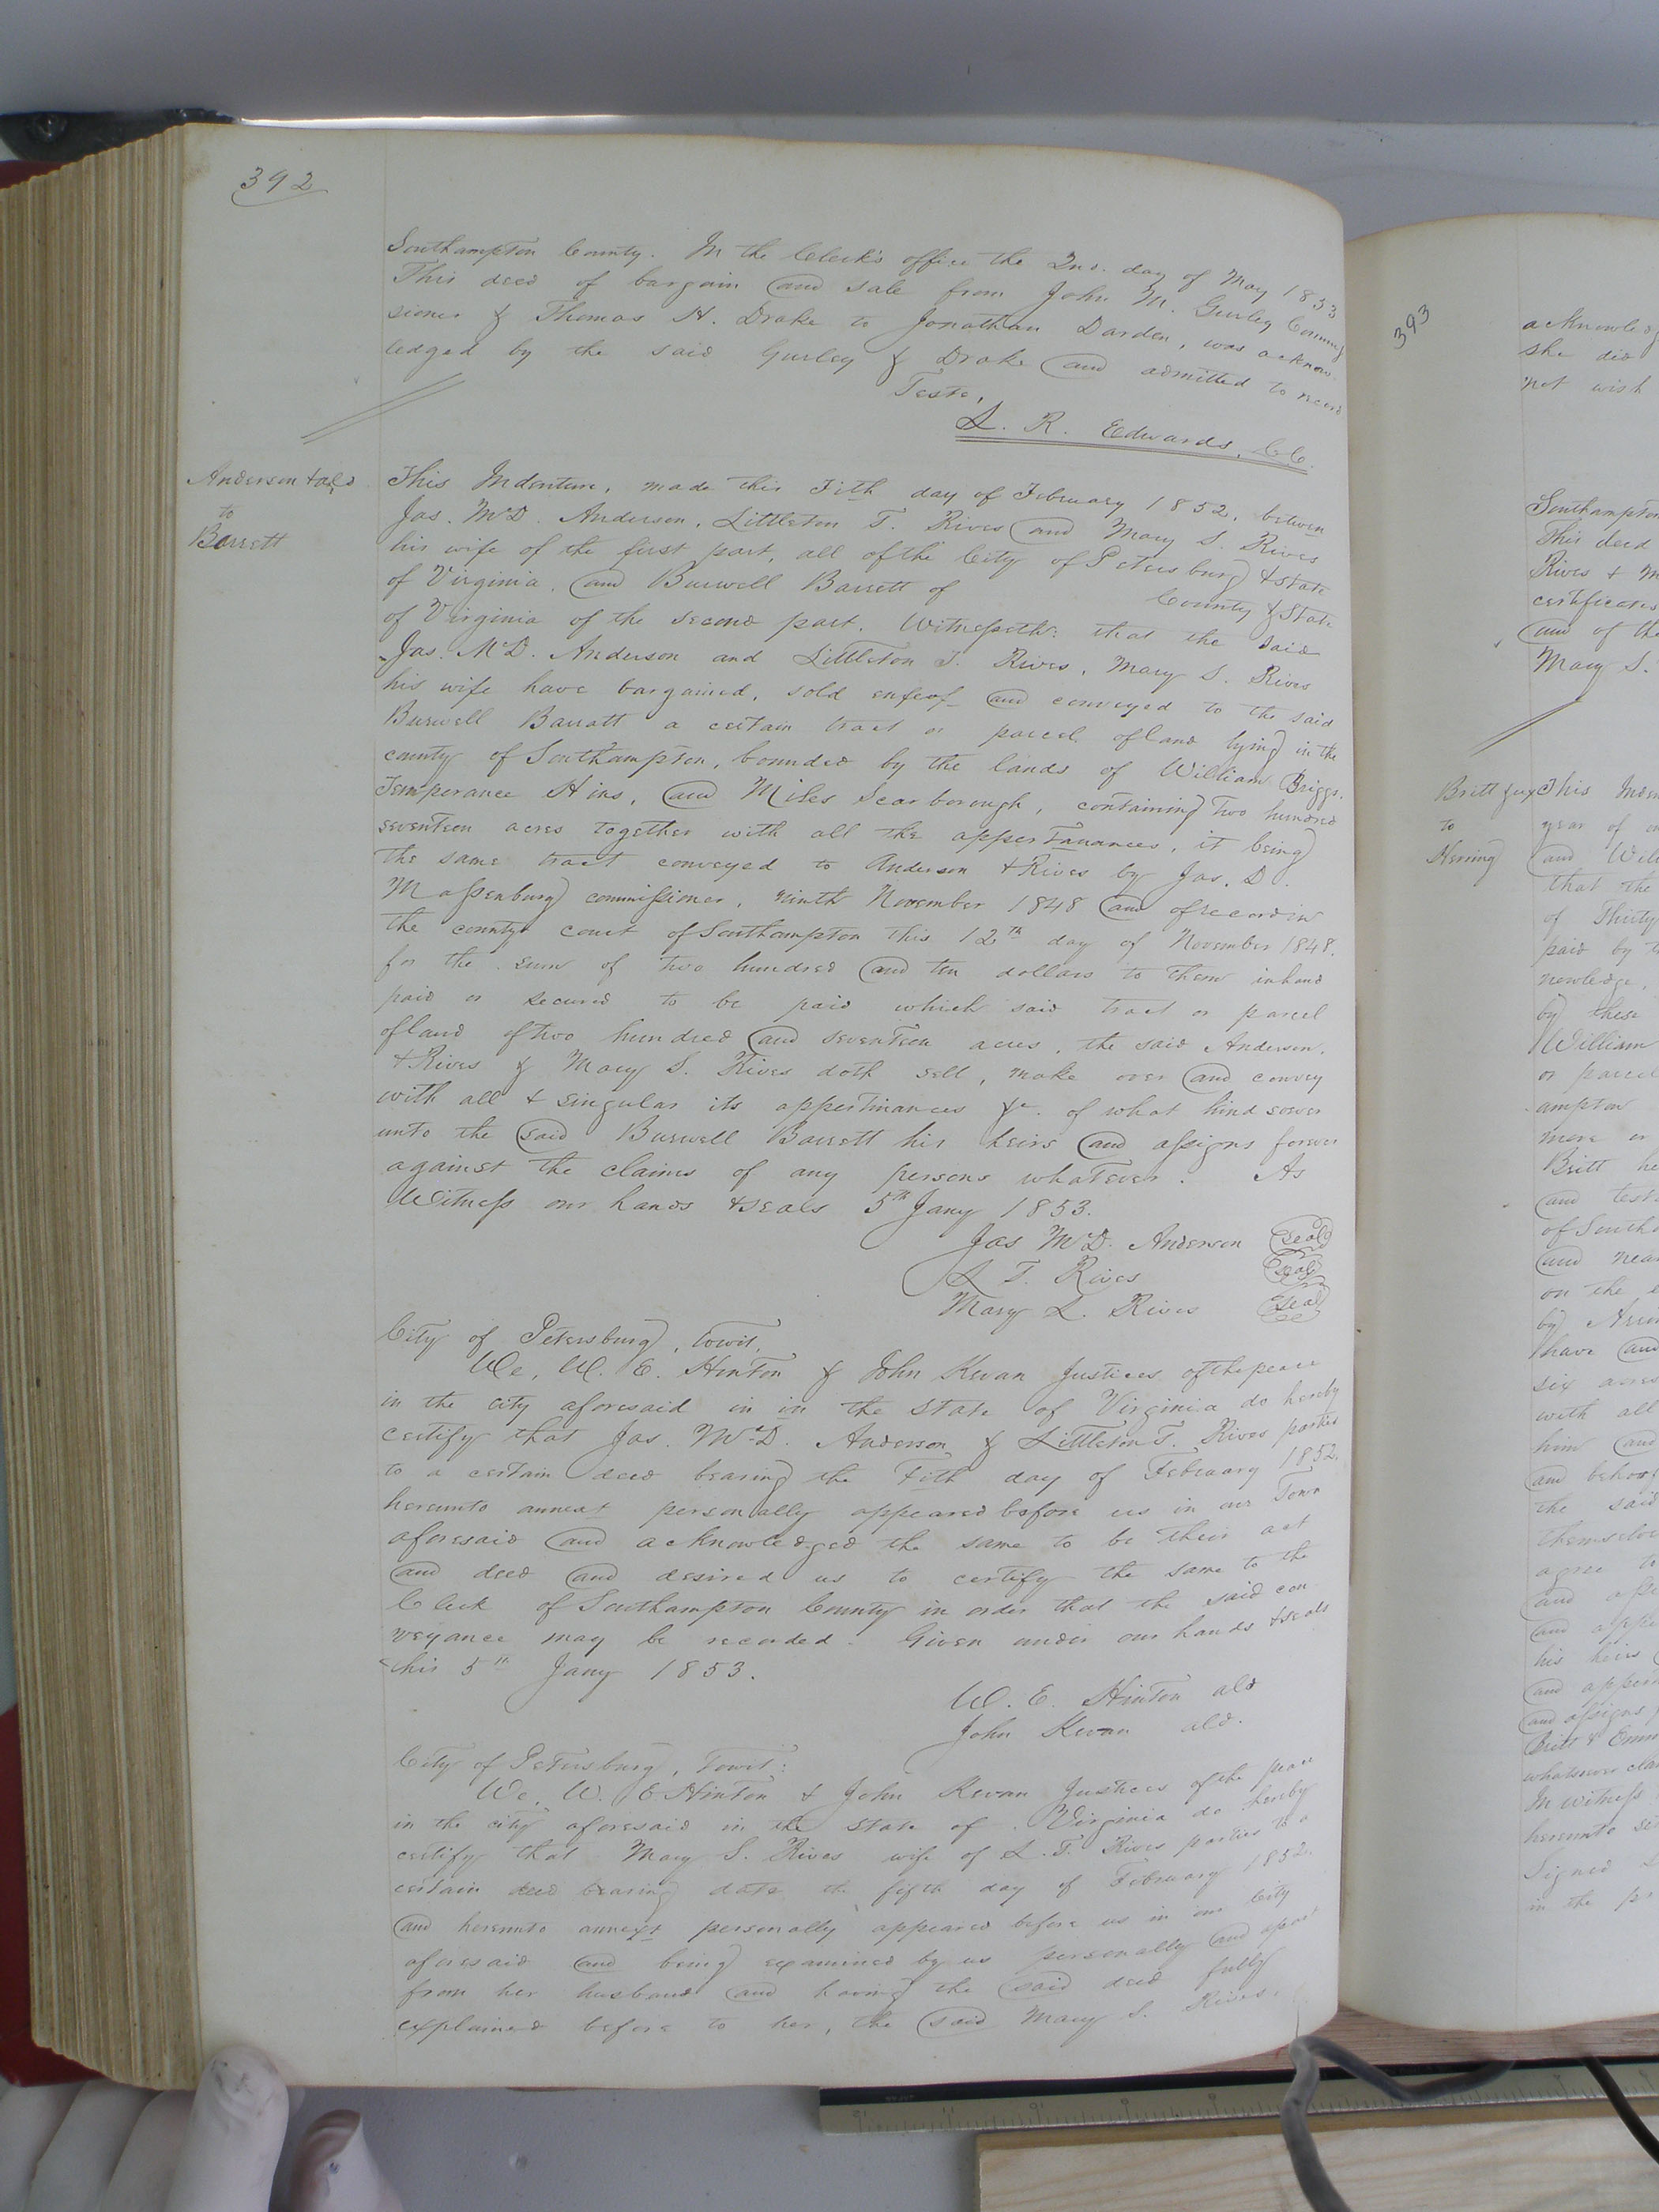 392
Southampton County. In the Clerk's office the 2nd. day of May 1853
This deed of bargain and sale from John M. Gurley Commis
sioner & Thomas H. Drake to Jonathan Darden, was acknow
ledged by the said Gurley & Drake and admitted to record
Teste,
L. R. Edwards, CC.
Anderson & als
to
Barrett
This Indenture, made this Fith day of February 1852, between
Jas. McD. Anderson, Littleton T. Rives and Mary S. Rives
his wife of the first part, all of the City of Petersburg & State
of Virginia. and Burwell Barrett of County & State
of Virginia of the second part. Witnesseth: that the said
Jas. McD. Anderson and Littleton T. Rives, Mary S. Rives
his wife have bargained, sold enfeof and conveyed to the said
Burwell Barratt a certain tract or parcel of land lying in the
county of Southampton, bounded by the lands of William Briggs.
Temperance Hins, and Miles Scarborough, containing Two hundred
seventeen acres together with all the appertanances, it being
the same tract conveyed to Anderson & Rives by Jas. D.
Massenburg commissioner, ninth November 1848 and of record in
the county court of Southampton this 12th day of November 1848.
for the sum of two hundred and ten dollars to them in hand
paid or secured to be paid which said tract or parcel
of land of two hundred and seventeen acres, the said Anderson,
& Rives & Mary S. Rives doth sell, make over and convey
with all & singular its appertinances &c. of what kind soever
unto the said Burwell Barrett his heirs and assigns forever
against the claims of any persons whatever. As
Witness our hands & seals 5th Jany 1853.
Jas McD. Anderson seal
L T. Rives seal
Mary L. Rives seal
City of Petersburg, towit,
We, W. E. Hinton & John Kevan Justices of the peace
in the city aforesaid in in the State of Virginia do hereby
certify that Jas. McD. Anderson & Littleton T. Rives parties
to a certain deed bearing the Fith day of February 1852,
hereunto annext personally appeared before us in our Town
aforesaid and acknowledged the same to be their act
and deed and desired us to certify the same to the
Clerk of Southampton County in order that the said con
veyance may be recorded. Given under our hands & seals
this 5th Jany 1853.
W. E. Hinton ald
John Kevan ald.
City of Petersburg, Towit:
We, W. E Hinton & John Kevan Justices of the peace
in the city aforesaid in the State of Virginia do hereby
certify that Mary S. Rives wife of L. T. Rives parties to a
certain deed bearing date the fifth day of February 1852.
and hereunto annext personally appeared before us in our City
aforesaid and being examined by us personally and apart
from her husband and having the said deed fully
explained before to her, the said Mary S. Rives,
393
acknowledg
she did
not wish
Southampton
This deed
Rives & M
certificates
and of th
Mary S.
Britt & ux
to
Herring
This Inden
year of
and Will
that the
of Thirty
paid by
newledge,
by these
William
or parcel
ampton
more or
Britt he
and test
of South
and near
on the
by
have and
six acres
with all
him and
and behoof
the said
themselve
agree to
and
and appe
his heirs
and appur
and assigns
Britt & Emm
whatsoever clai
In witness
hereunto set
Signed
in the pr